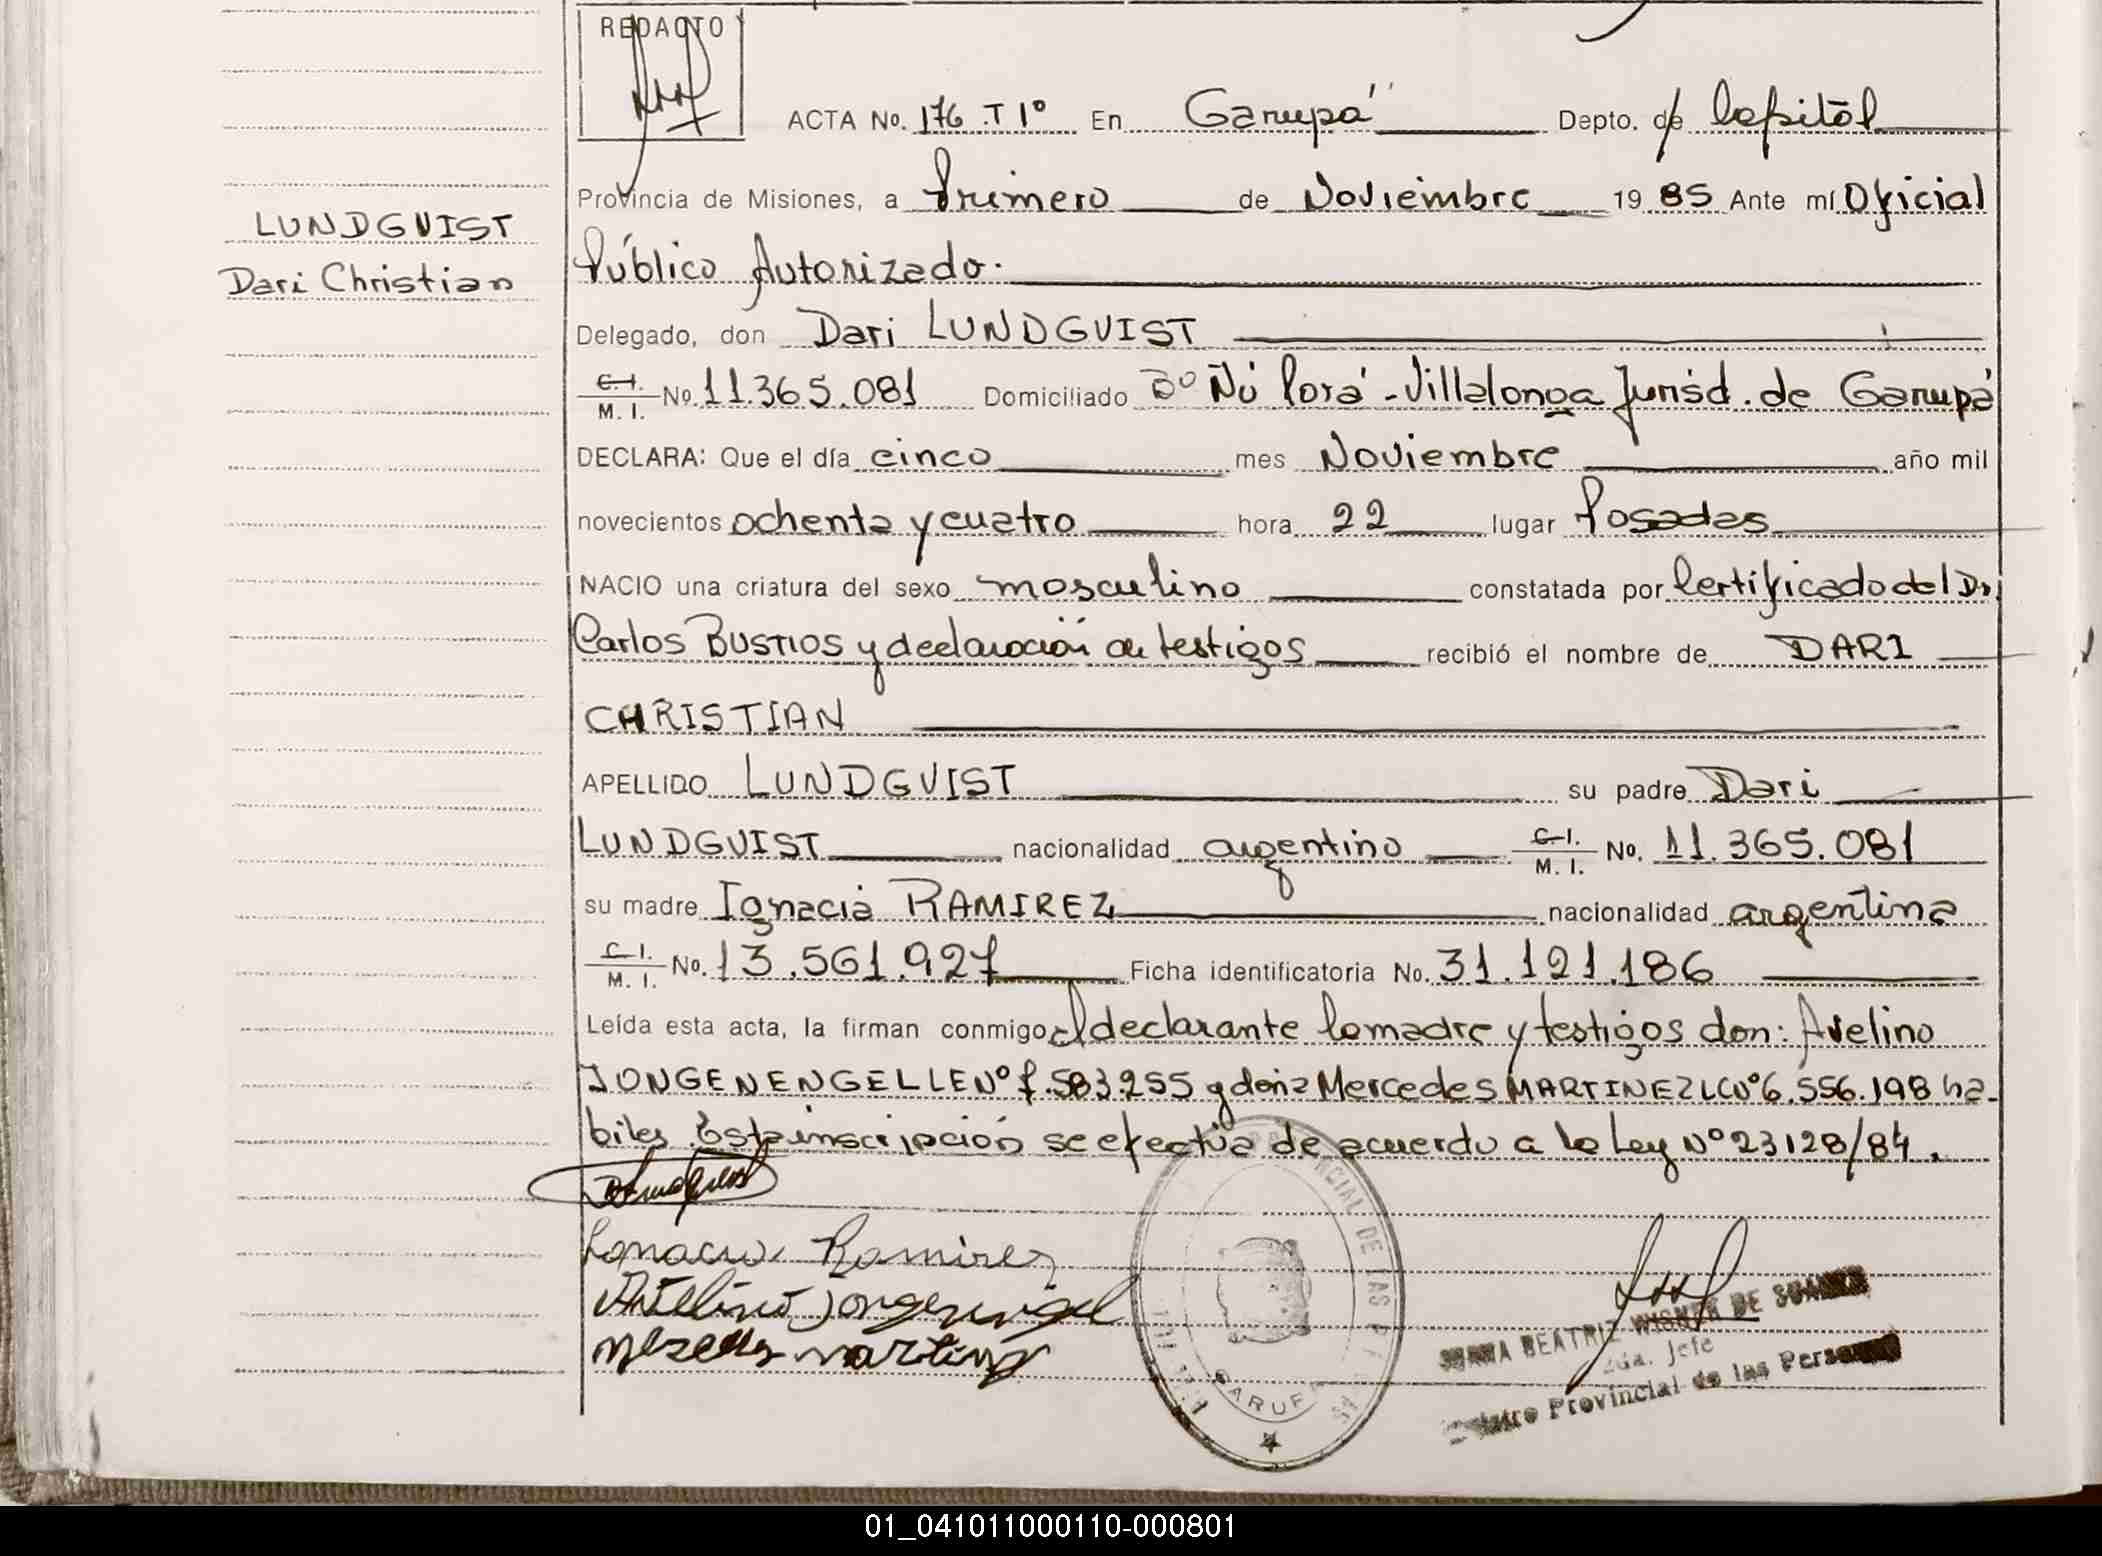 REDACTO
ACTA No. 176 .T 1º En Garupá Depto. de Capital
Provincia de Misiones, a Primero de Noviembre 19 85 Ante mí Oficial
LUNDGVIST
Público Autorizado.
Dari Christian
Delegado, don Dari LUNDGVIST
C.I. M.I. No. 11.365.081 Domiciliado Bº Ñú Porá - Villalonga Jurisd. de Garupá
DECLARA: Que el día cinco mes Noviembre año mil
novecientos ochenta y cuatro hora 22 lugar Posadas
NACIO una criatura del sexo masculino constatada por Certificado del Dr.
Carlos BUSTIOS y declaración de testigos recibió el nombre de DARI
CHRISTIAN
APELLIDO LUNDGVIST su padre Dari
LUNDGVIST nacionalidad argentino C.I. M.I. No. 11.365.081
su madre Ignacia RAMIREZ nacionalidad argentina
C.I. M.I. No. 13.561.927 Ficha identificatoria No. 31.121.186
Leída esta acta, la firman conmigo el declarante la madre y testigos don: Avelino
JONGENENGELLENº 7.583.255 y doña Mercedes MARTINEZ LCNº 6.556.198 ha-
biles. Esta inscripción se efectúa de acuerdo a la Ley Nº 23128/84.
Ignacia Ramirez
Avelino Jongenengel
Mercedes Martinez
CIAL DE LAS
BEATRIZ WISNER DE
2da. Jefe
Provincial de las Personas
01_041011000110-000801